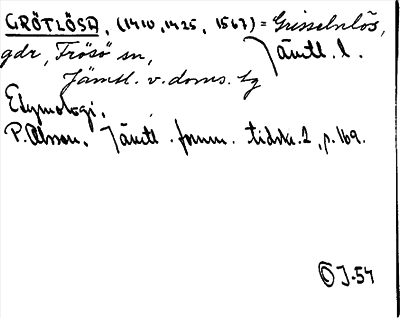 GRÖTLÖSA, (1410, 1425, 1567) = Grisselnlös,
gdr, Frösö sn, Jämtl. l.
Jämtl. v. doms. tg
Etymologi.
P. Olsson. Jämtl. fornm. tidskr. 2, p. 169.
ÖJ-54